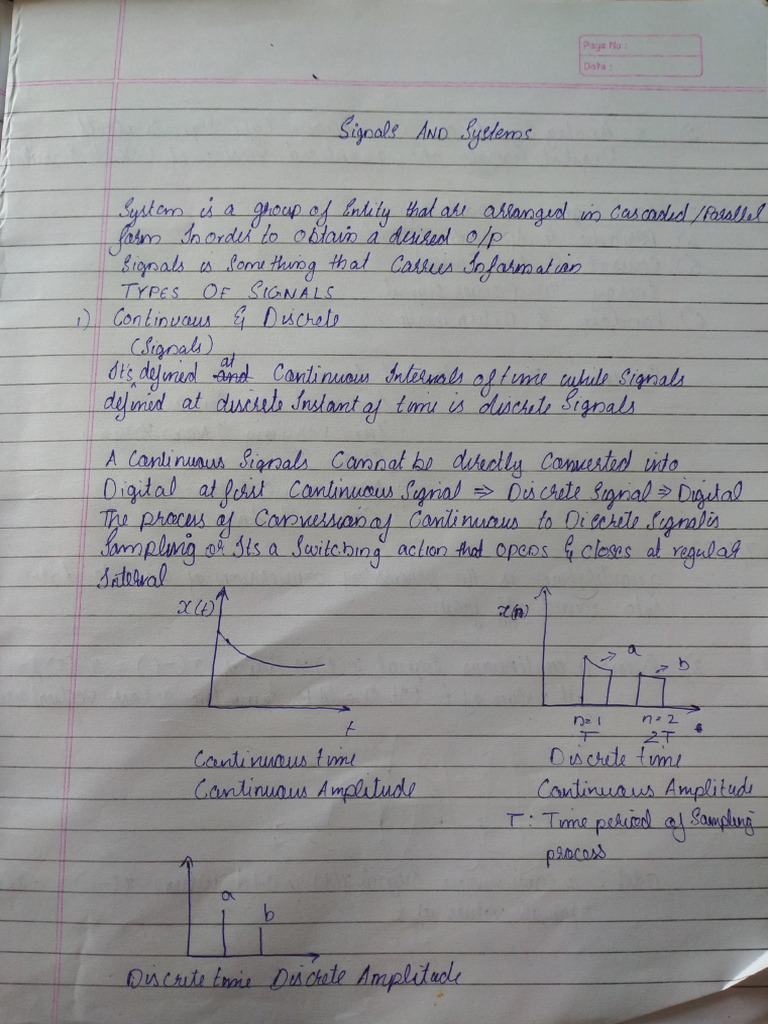 Page No :
Date :
Signals AND Systems
System is a group of Entity that are arranged in Cascaded/Parallel
form Inorder to obtain a desired O/P
Signals is Something that Carries Information
TYPES OF SIGNALS
1) Continuous & Discrete
(Signals)
at
It's defined and Continuous Intervals of time while Signals
defined at discrete Instant of time is discrete Signals
A Continuous Signals Cannot be directly Converted into
Digital at first Continuous Signal ⇒ Discrete Signal ⇒ Digital
The process of Conversion of Continuous to Discrete Signal is
Sampling or Its a Switching action that opens & closes at regular
Interval
x(t) x(n)
a
b
n=1 n=2
t T 2T
Continuous time Discrete time
Continuous Amplitude Continuous Amplitude
T : Time period of Sampling
process
a
b
Discrete time Discrete Amplitude